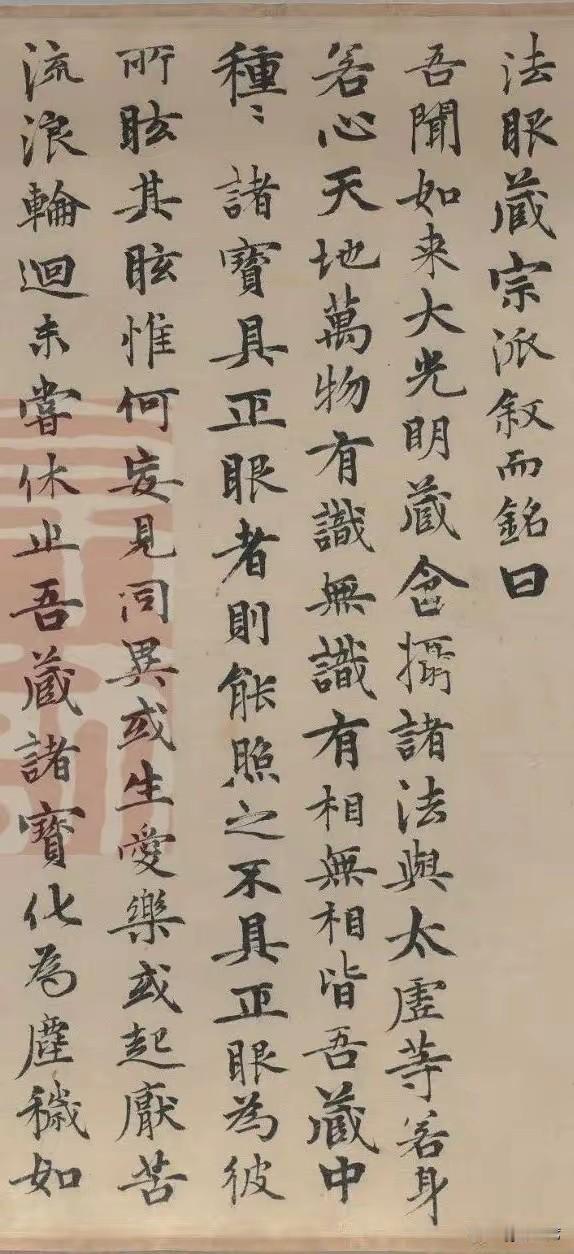 法眼藏宗派敘而銘曰
吾聞如来大光明藏含攝諸法與太虛等若身
若心天地萬物有識無識有相無相皆吾藏中
種〻諸寶具正眼者則能照之不具正眼為彼
所眩其眩惟何妄見同異或生愛樂或起厭苦
流浪輪迴未嘗休止吾藏諸寶化為塵穢如